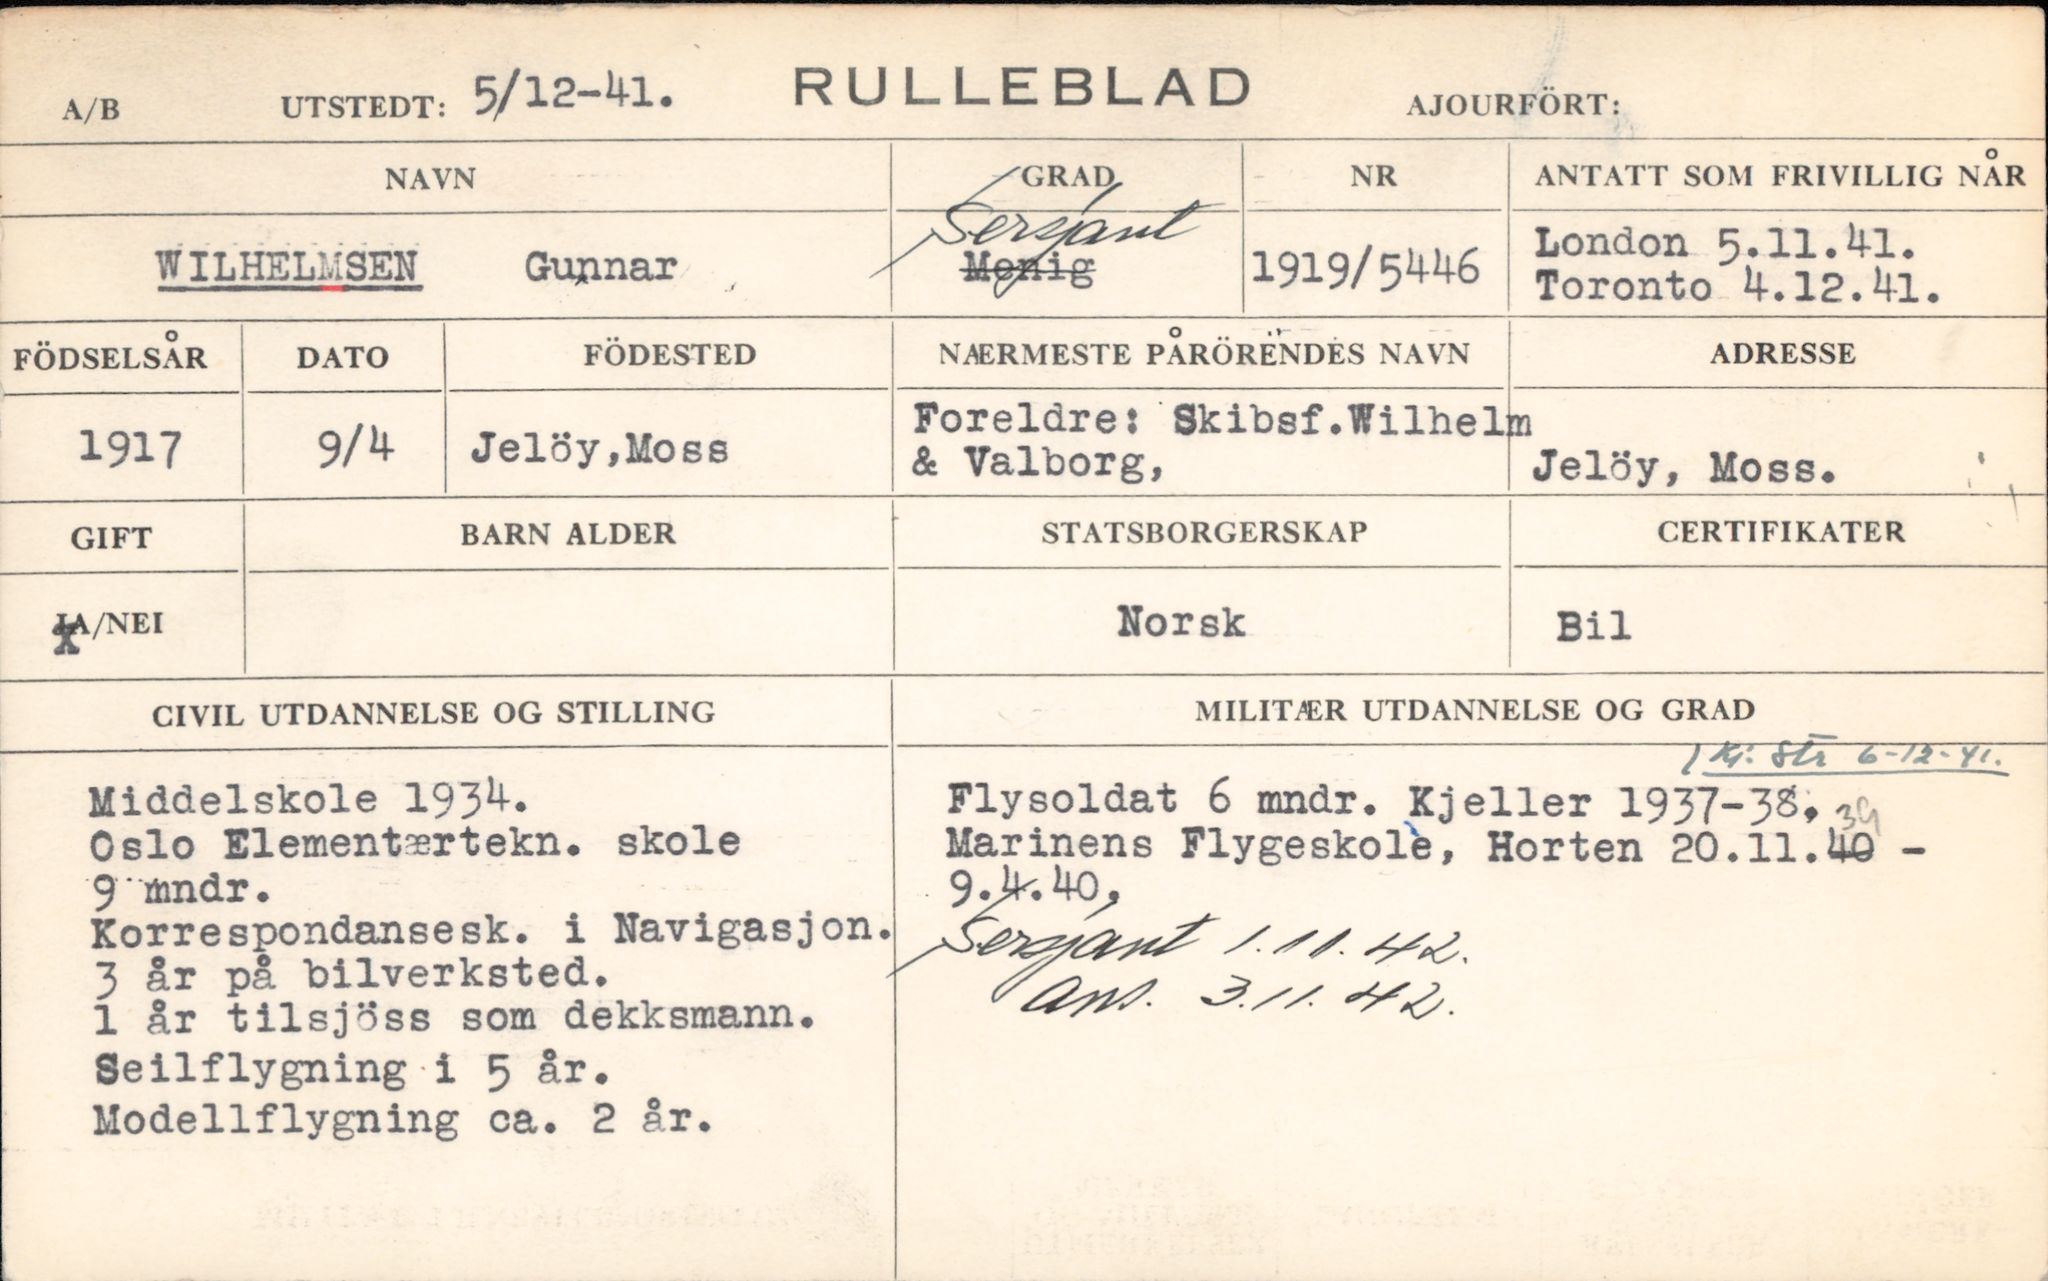 A/B UTSTEDT: 5/12-41. RULLEBLAD AJOURFÖRT:
NAVN GRAD NR ANTATT SOM FRIVILLIG NÅR
Sersjant
WILHELMSEN Gunnar Menig 1919/5446 London 5.11.41.
Toronto 4.12.41.
FÖDSELSÅR DATO FÖDESTED NÆRMESTE PÅRÖRENDES NAVN ADRESSE
1917 9/4 Jelöy,Moss Foreldre: Skibsf.Wilhelm
& Valborg, Jelöy, Moss.
GIFT BARN ALDER STATSBORGERSKAP CERTIFIKATER
JA/NEI Norsk Bil
CIVIL UTDANNELSE OG STILLING MILITÆR UTDANNELSE OG GRAD
6-12-41.
Middelskole 1934.
Oslo Elementærtekn. skole
9 mndr.
Korrespondansesk. i Navigasjon.
3 år på bilverksted.
1 år tilsjöss som dekksmann.
Seilflygning i 5 år.
Modellflygning ca. 2 år.
Flysoldat 6 mndr. Kjeller 1937-38.
39
Marinens Flygeskole, Horten 20.11.40 -
9.4.40.
Sersjant 1.11.42.
Ans. 3.11.42.